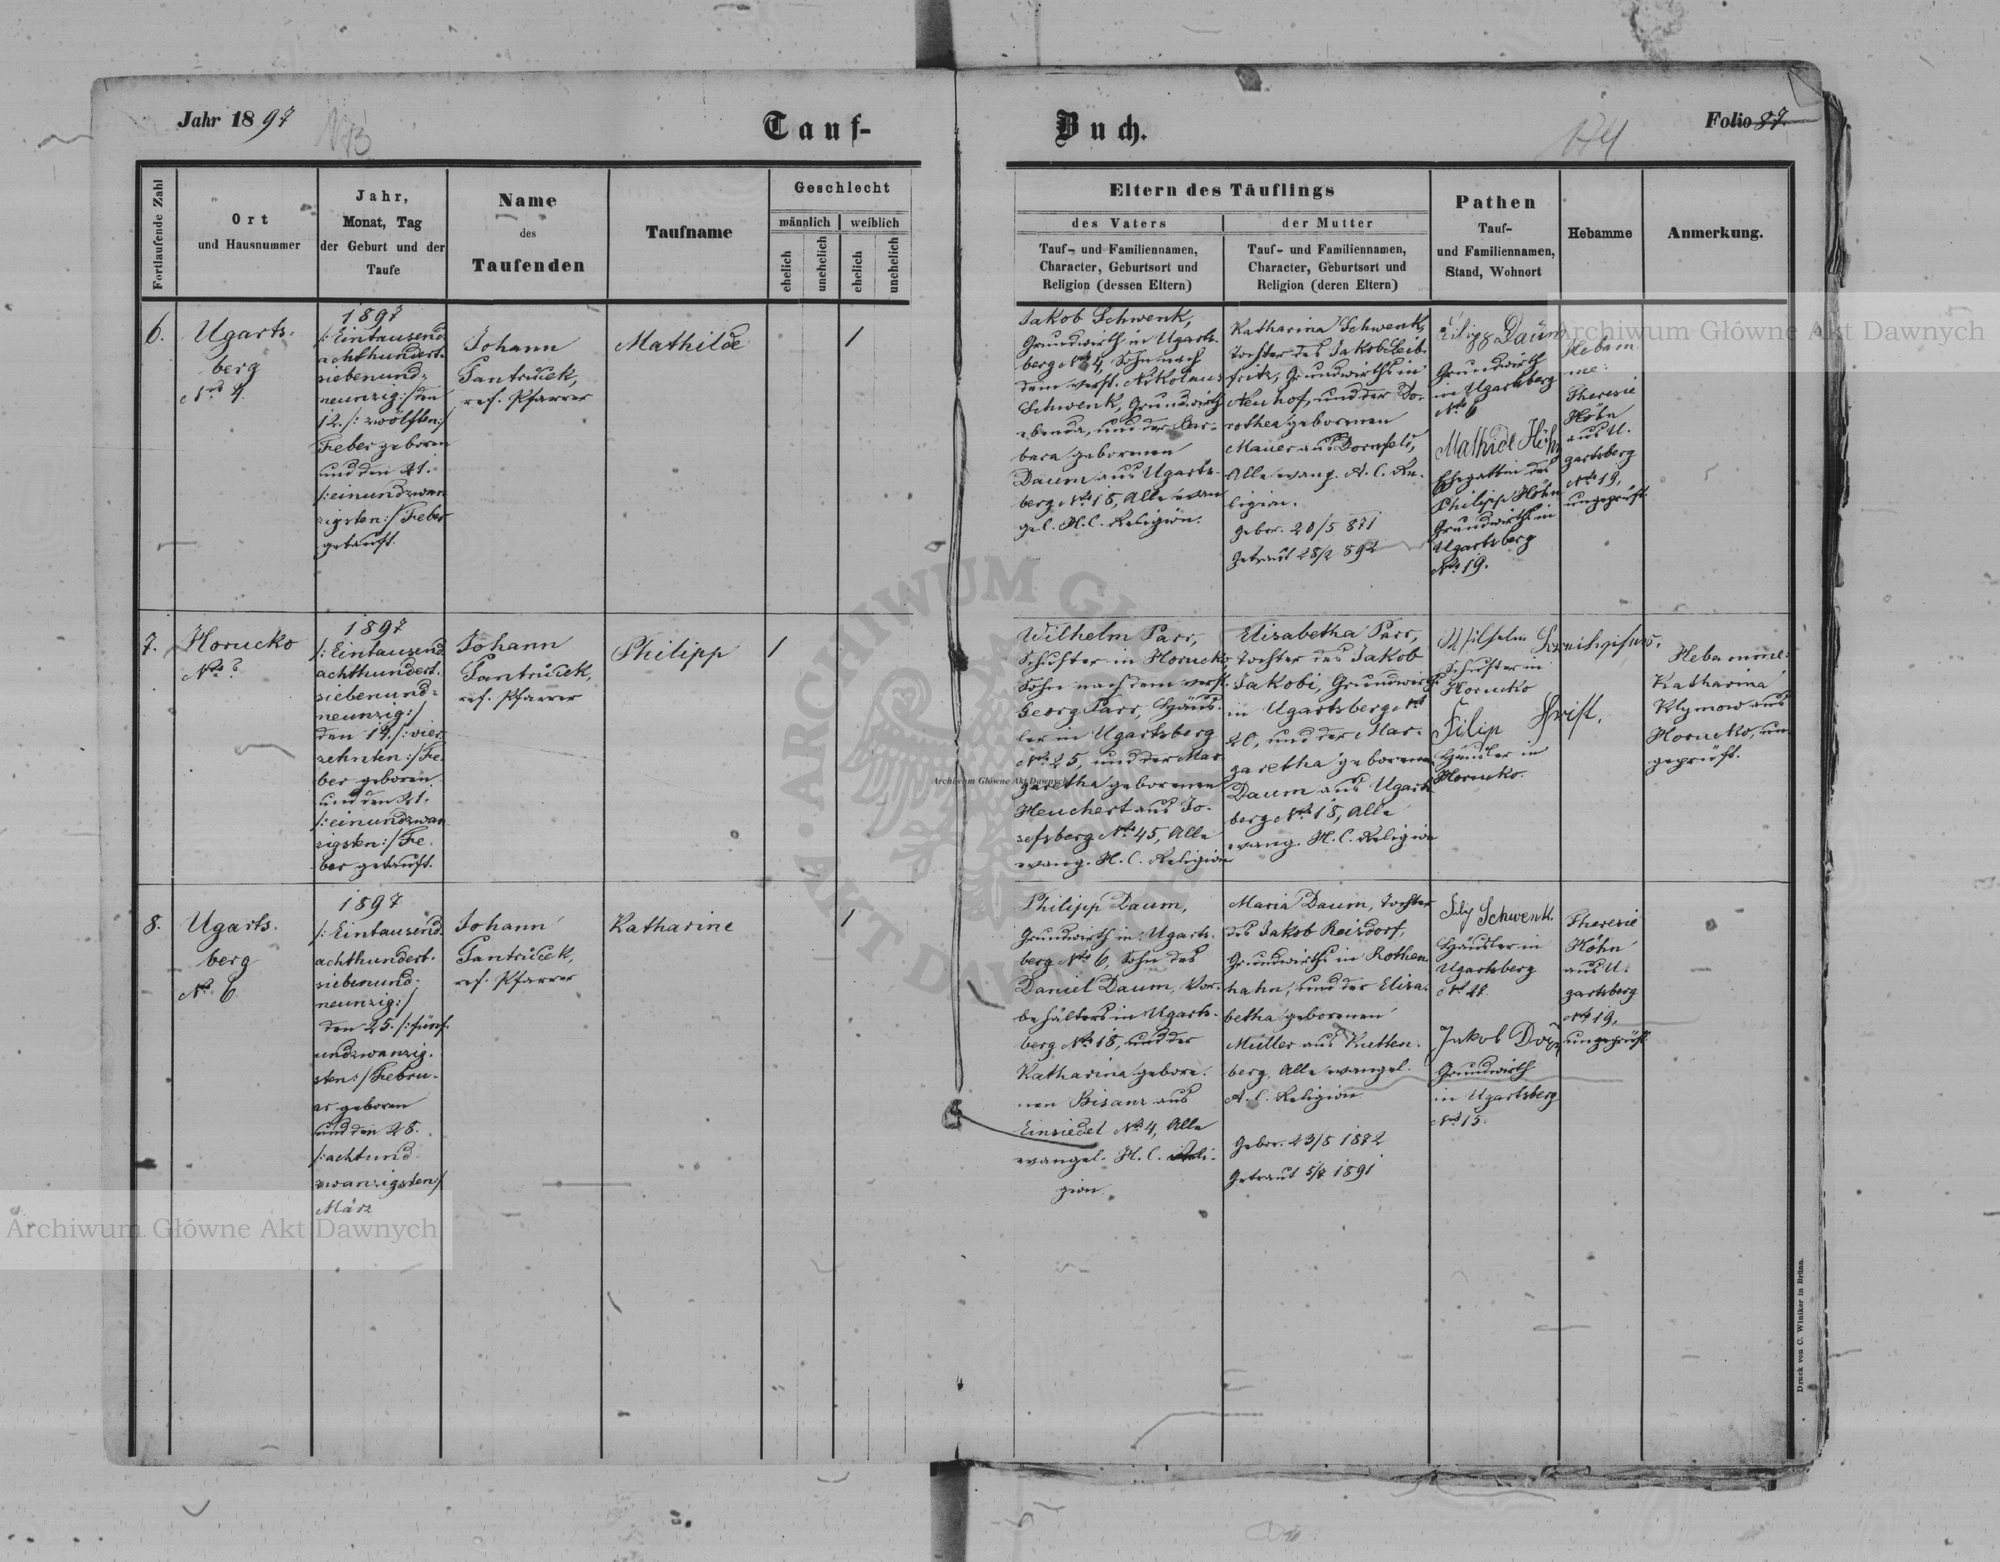 Jahr 1897
Tauf-
Buch.
Folio 87.
Fortlaufende Zahl
Ort
und Hausnummer
Jahr,
Monat, Tag
der Geburt und der
Taufe
Name
des
Taufenden
Taufname
Geschlecht
männlich
weiblich
ehelich
unehelich
ehelich
unehelich
Eltern des Täuflings
des Vaters
der Mutter
Tauf- und Familiennamen,
Character, Geburtsort und
Religion (dessen Eltern)
Tauf- und Familiennamen,
Character, Geburtsort und
Religion (deren Eltern)
Pathen
Tauf-
und Familiennamen,
Stand, Wohnort
Hebamme
Anmerkung.
6.
Ugarts-
berg
Nro 4.
1897
/:Eintausend
achthundert-
siebenund-
neunzig:/ den
12. /:zwölften:/
Feber geboren
und den 21.
/:einundzwan
zigsten:/ Feber
getauft.
Johann
ref. Pfarrer
Mathilde
1
Jakob Schwenk,
Grundwirth in Ugarts-
berg Nro 4, Sohn nach
dem verst. Nikolaus
Schwenk, Grundwirth
ebenda, und der Bar-
bara geborenen
Daum aus Ugarts-
berg Nro 18, Alle evan
gel. H.C. Religion.
Katharina Schwenk,
Tochter des Jakob Leib-
fritz, Grundwirths in
Neuhof, und der Do-
rothea geborenen
Mauer aus Dornfeld,
Alle evang. A.C. Re-
ligion.
Gebor. 20/5 871
Getraut 28/2 892
Filipp Daum
Grundwirth
in Ugartsberg
Nro 6
Mathilde Höhn
Ehegattin des
Philipp Höhn
Grundwirths in
Ugartsberg
Nro 19.
Hebam
me:
Theresie
Höhn
aus U.
gartsberg
Nro 19,
ungeprüft.
7.
Horucko
Nro ?
1897
/:Eintausend
achthundert-
siebenund-
neunzig:/
den 14. /:vier
zehnten:/ Fe
ber geboren
und den 21.
/:einundzwan
zigsten:/ Fe.
ber getauft.
Johann
ref. Pfarrer
Philipp
1
Wilhelm Parr,
Schuster in Horucko
Sohn nach dem verst.
Georg Parr, Häus-
ler in Ugartsberg
Nro 25, und der Mar
garetha geborenen
Heuchert aus Jo-
sefsberg Nro 45, Alle
evang. H.C. Religion
Elisabetha Parr,
Tochter des Jakob
Jakobi, Grundwirths
in Ugartsberg Nro
20, und der Mar-
garetha geborenen
Daum aus Ugarts
berg Nro 18, Alle
evang. H.C. Religion
Wilhelm
Schuster in
Horucko
Filip
Häusler in
Horucko.
Hebamme:
Katharina
Klymow aus
Horucko, un
geprüft.
8.
Ugarts-
berg
Nro 6
1897
/:Eintausend
achthundert-
siebenund-
neunzig:/
den 25. /:fünf-
undzwanzig-
sten:/ Febru-
ar geboren
und den 28.
/:achtund-
zwanzigsten:/
März
Johann
ref. Pfarrer
Katharine
1
Philipp Daum,
Grundwirth in Ugarts-
berg Nro 6, Sohn des
Daniel Daum, Vor-
behälters in Ugarts-
berg Nro 18, und der
Katharina gebore-
nen Bisanz aus
Einsiedel Nro 4, Alle
evangel. H.C. Reli-
gion
Maria Daum, Tochter
des Jakob Reisdorf,
Grundwirths in Rothen
hahn, und der Elisa-
betha geborenen
Müller aus Kutten-
berg. Alle evangel.
A.C. Religion
Gebor. 23/5 1872
Getraut 5/2 1891
Filip Schwenk
Häusler in
Ugartsberg
Jakob
Grundwirth
in Ugartsberg
Nro 15.
Theresie
Höhn
aus U.
gartsberg
Nro 19,
ungeprüft
Druck von C. Winiker in Brünn.
Archiwum Główne Akt Dawnych
Archiwum Główne Akt Dawnych
Archiwum Główne Akt Dawnych